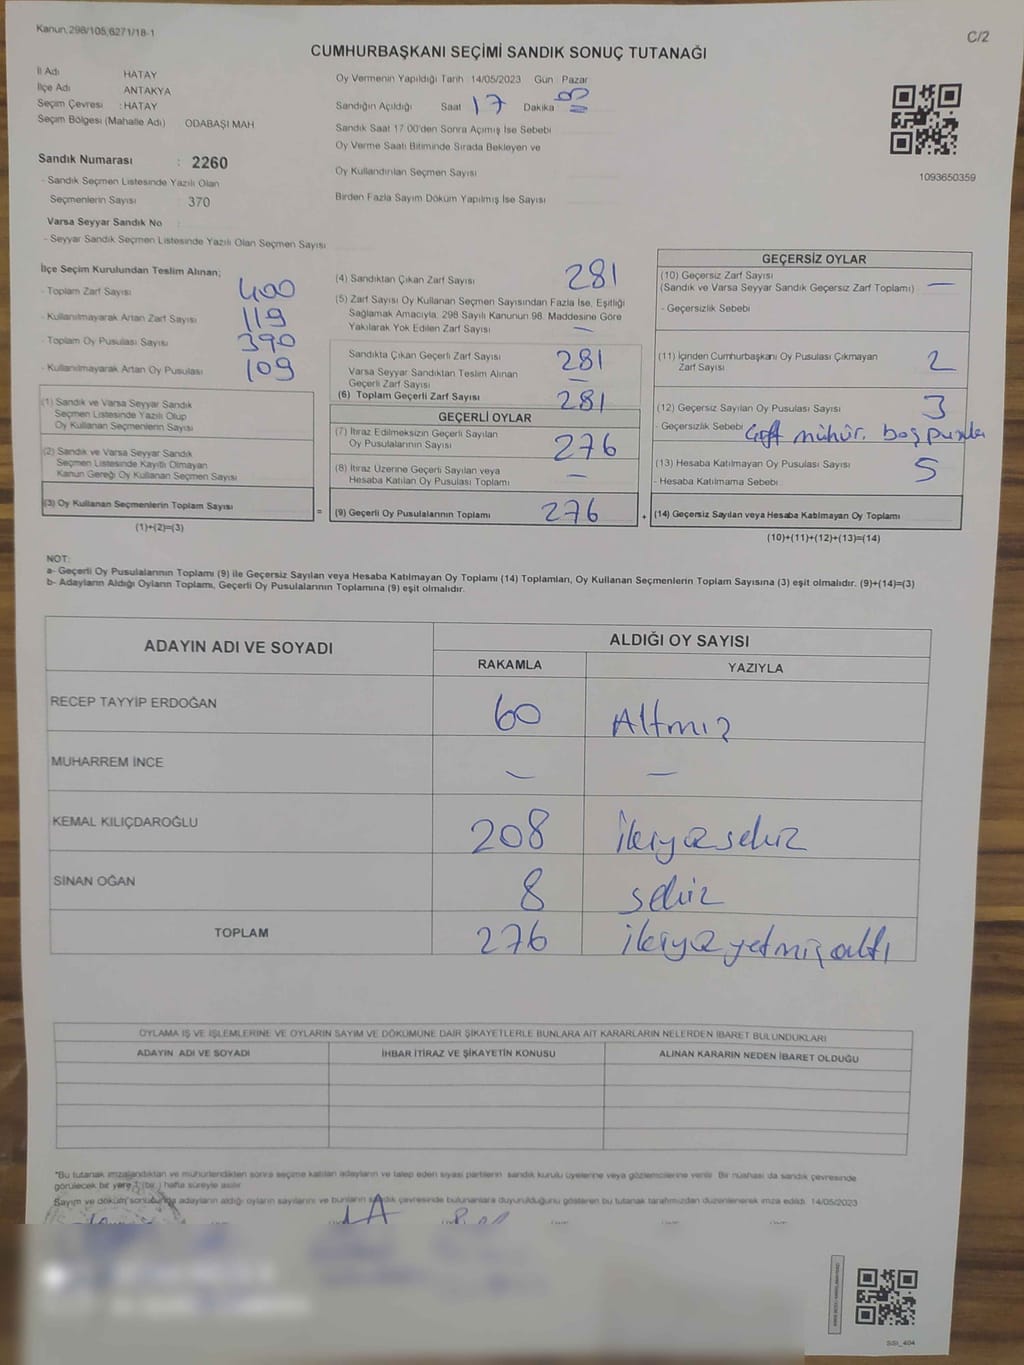 Kanun,298/105,6271/18-1
C/2
CUMHURBAŞKANI SEÇİMİ SANDIK SONUÇ TUTANAĞI
İl Adı HATAY
İlçe Adı ANTAKYA
Seçim Çevresi : HATAY
Seçim Bölgesi (Mahalle Adı) ODABAŞI MAH
Sandık Numarası : 2260
- Sandık Seçmen Listesinde Yazılı Olan
Seçmenlerin Sayısı : 370
Varsa Seyyar Sandık No
- Seyyar Sandık Seçmen Listesinde Yazılı Olan Seçmen Sayısı
Oy Vermenin Yapıldığı Tarih 14/05/2023 Gün Pazar
Sandığın Açıldığı Saat 17 Dakika
Sandık Saat 17 00'den Sonra Açımış İse Sebebi
Oy Verme Saati Bitiminde Sırada Bekleyen ve
Oy Kullandırılan Seçmen Sayısı
Birden Fazla Sayım Döküm Yapılmış İse Sayısı
1093650359
İlçe Seçim Kurulundan Teslim Alınan;
- Toplam Zarf Sayısı 400
- Kullanılmayarak Artan Zarf Sayısı 119
- Toplam Oy Pusulası Sayısı 390
- Kullanılmayarak Artan Oy Pusulası 109
(1) Sandık ve Varsa Seyyar Sandık
Seçmen Listesinde Yazılı Olup
Oy Kullanan Seçmenlerin Sayısı
(2) Sandık ve Varsa Seyyar Sandık
Seçmen Listesinde Kayıtlı Olmayan
Kanun Gereği Oy Kullanan Seçmen Sayısı
(3) Oy Kullanan Seçmenlerin Toplam Sayısı =
(1)+(2)=(3)
(4) Sandıktan Çıkan Zarf Sayısı 281
(5) Zarf Sayısı Oy Kullanan Seçmen Sayısından Fazla İse, Eşitliği
Sağlamak Amacıyla, 298 Sayılı Kanunun 98. Maddesine Göre
Yakılarak Yok Edilen Zarf Sayısı —
Sandıkta Çıkan Geçerli Zarf Sayısı 281
Varsa Seyyar Sandıktan Teslim Alınan
Geçerli Zarf Sayısı —
(6) Toplam Geçerli Zarf Sayısı 281
GEÇERLİ OYLAR
(7) İtiraz Edilmeksizin Geçerli Sayılan
Oy Pusulalarının Sayısı 276
(8) İtiraz Üzerine Geçerli Sayılan veya
Hesaba Katılan Oy Pusulası Toplamı —
(9) Geçerli Oy Pusulalarının Toplamı 276 +
GEÇERSİZ OYLAR
(10) Geçersiz Zarf Sayısı
(Sandık ve Varsa Seyyar Sandık Geçersiz Zarf Toplamı) —
- Geçersizlik Sebebi
(11) İçinden Cumhurbaşkanı Oy Pusulası Çıkmayan
Zarf Sayısı 2
(12) Geçersiz Sayılan Oy Pusulası Sayısı 3
- Geçersizlik Sebebi mühür. boş
(13) Hesaba Katılmayan Oy Pusulası Sayısı 5
- Hesaba Katılmama Sebebi
(14) Geçersiz Sayılan veya Hesaba Katılmayan Oy Toplamı
(10)+(11)+(12)+(13)=(14)
NOT:
a- Geçerli Oy Pusulalarının Toplamı (9) ile Geçersiz Sayılan veya Hesaba Katılmayan Oy Toplamı (14) Toplamları, Oy Kullanan Seçmenlerin Toplam Sayısına (3) eşit olmalıdır. (9)+(14)=(3)
b- Adayların Aldığı Oyların Toplamı, Geçerli Oy Pusulalarının Toplamına (9) eşit olmalıdır.
ADAYIN ADI VE SOYADI ALDIĞI OY SAYISI
RAKAMLA YAZIYLA
RECEP TAYYİP ERDOĞAN 60 Altmış
MUHARREM İNCE — —
KEMAL KILIÇDAROĞLU 208 ikiyüzsekiz
SİNAN OĞAN 8 sekiz
TOPLAM 276 ikiyüzyetmişaltı
OYLAMA İŞ VE İŞLEMLERİNE VE OYLARIN SAYIM VE DÖKÜMÜNE DAİR ŞİKAYETLERLE BUNLARA AİT KARARLARIN NELERDEN İBARET BULUNDUKLARI
ADAYIN ADI VE SOYADI İHBAR İTİRAZ VE ŞİKAYETİN KONUSU ALINAN KARARIN NEDEN İBARET OLDUĞU
*Bu tutanak imzalandıktan ve mühürlendikten sonra seçime katılan adayların ve talep eden siyasi partilerin sandık kurulu üyelerine veya gözlemcilerine verilir. Bir nüshası da sandık çevresinde
görülecek bir yere 1 (bir) hafta süreyle asılır.
Sayım ve döküm sonucunda adayların aldığı oyların sayılarını ve bunların sandık çevresinde bulunanlara duyurulduğunu gösteren bu tutanak tarafımızdan düzenlenerek imza edildi. 14/05/2023
SSİ_404